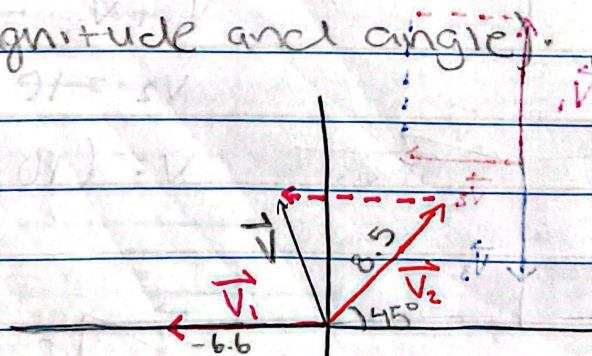 gnitude and angle).
V
8.5
V₁
V₂
45°
-6.6